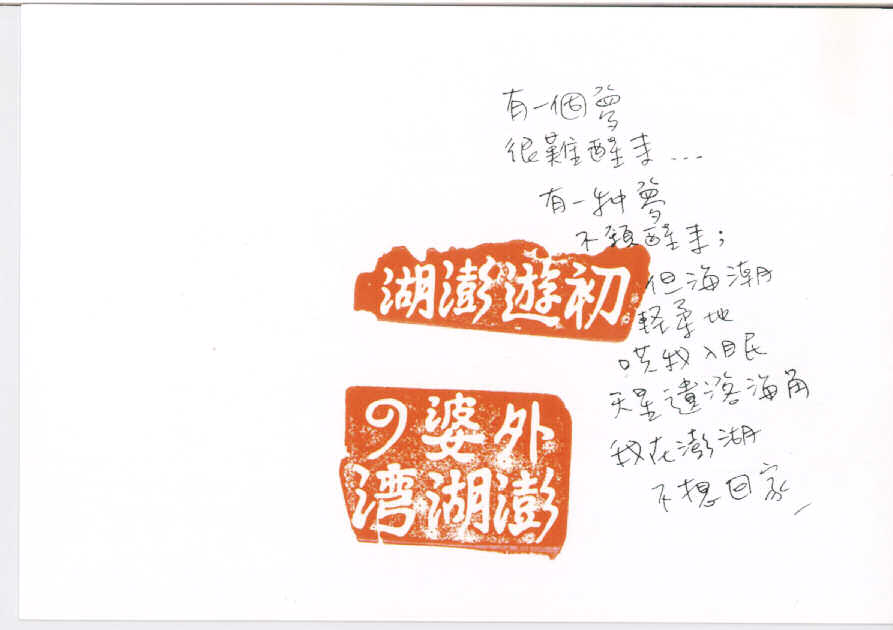 有一個夢
很難醒来...
有一种夢
不願醒来；
但海潮
輕柔地
哄我入眠
天星遺落海角
我在澎湖
不想回家
初遊澎湖
外婆の
澎湖湾